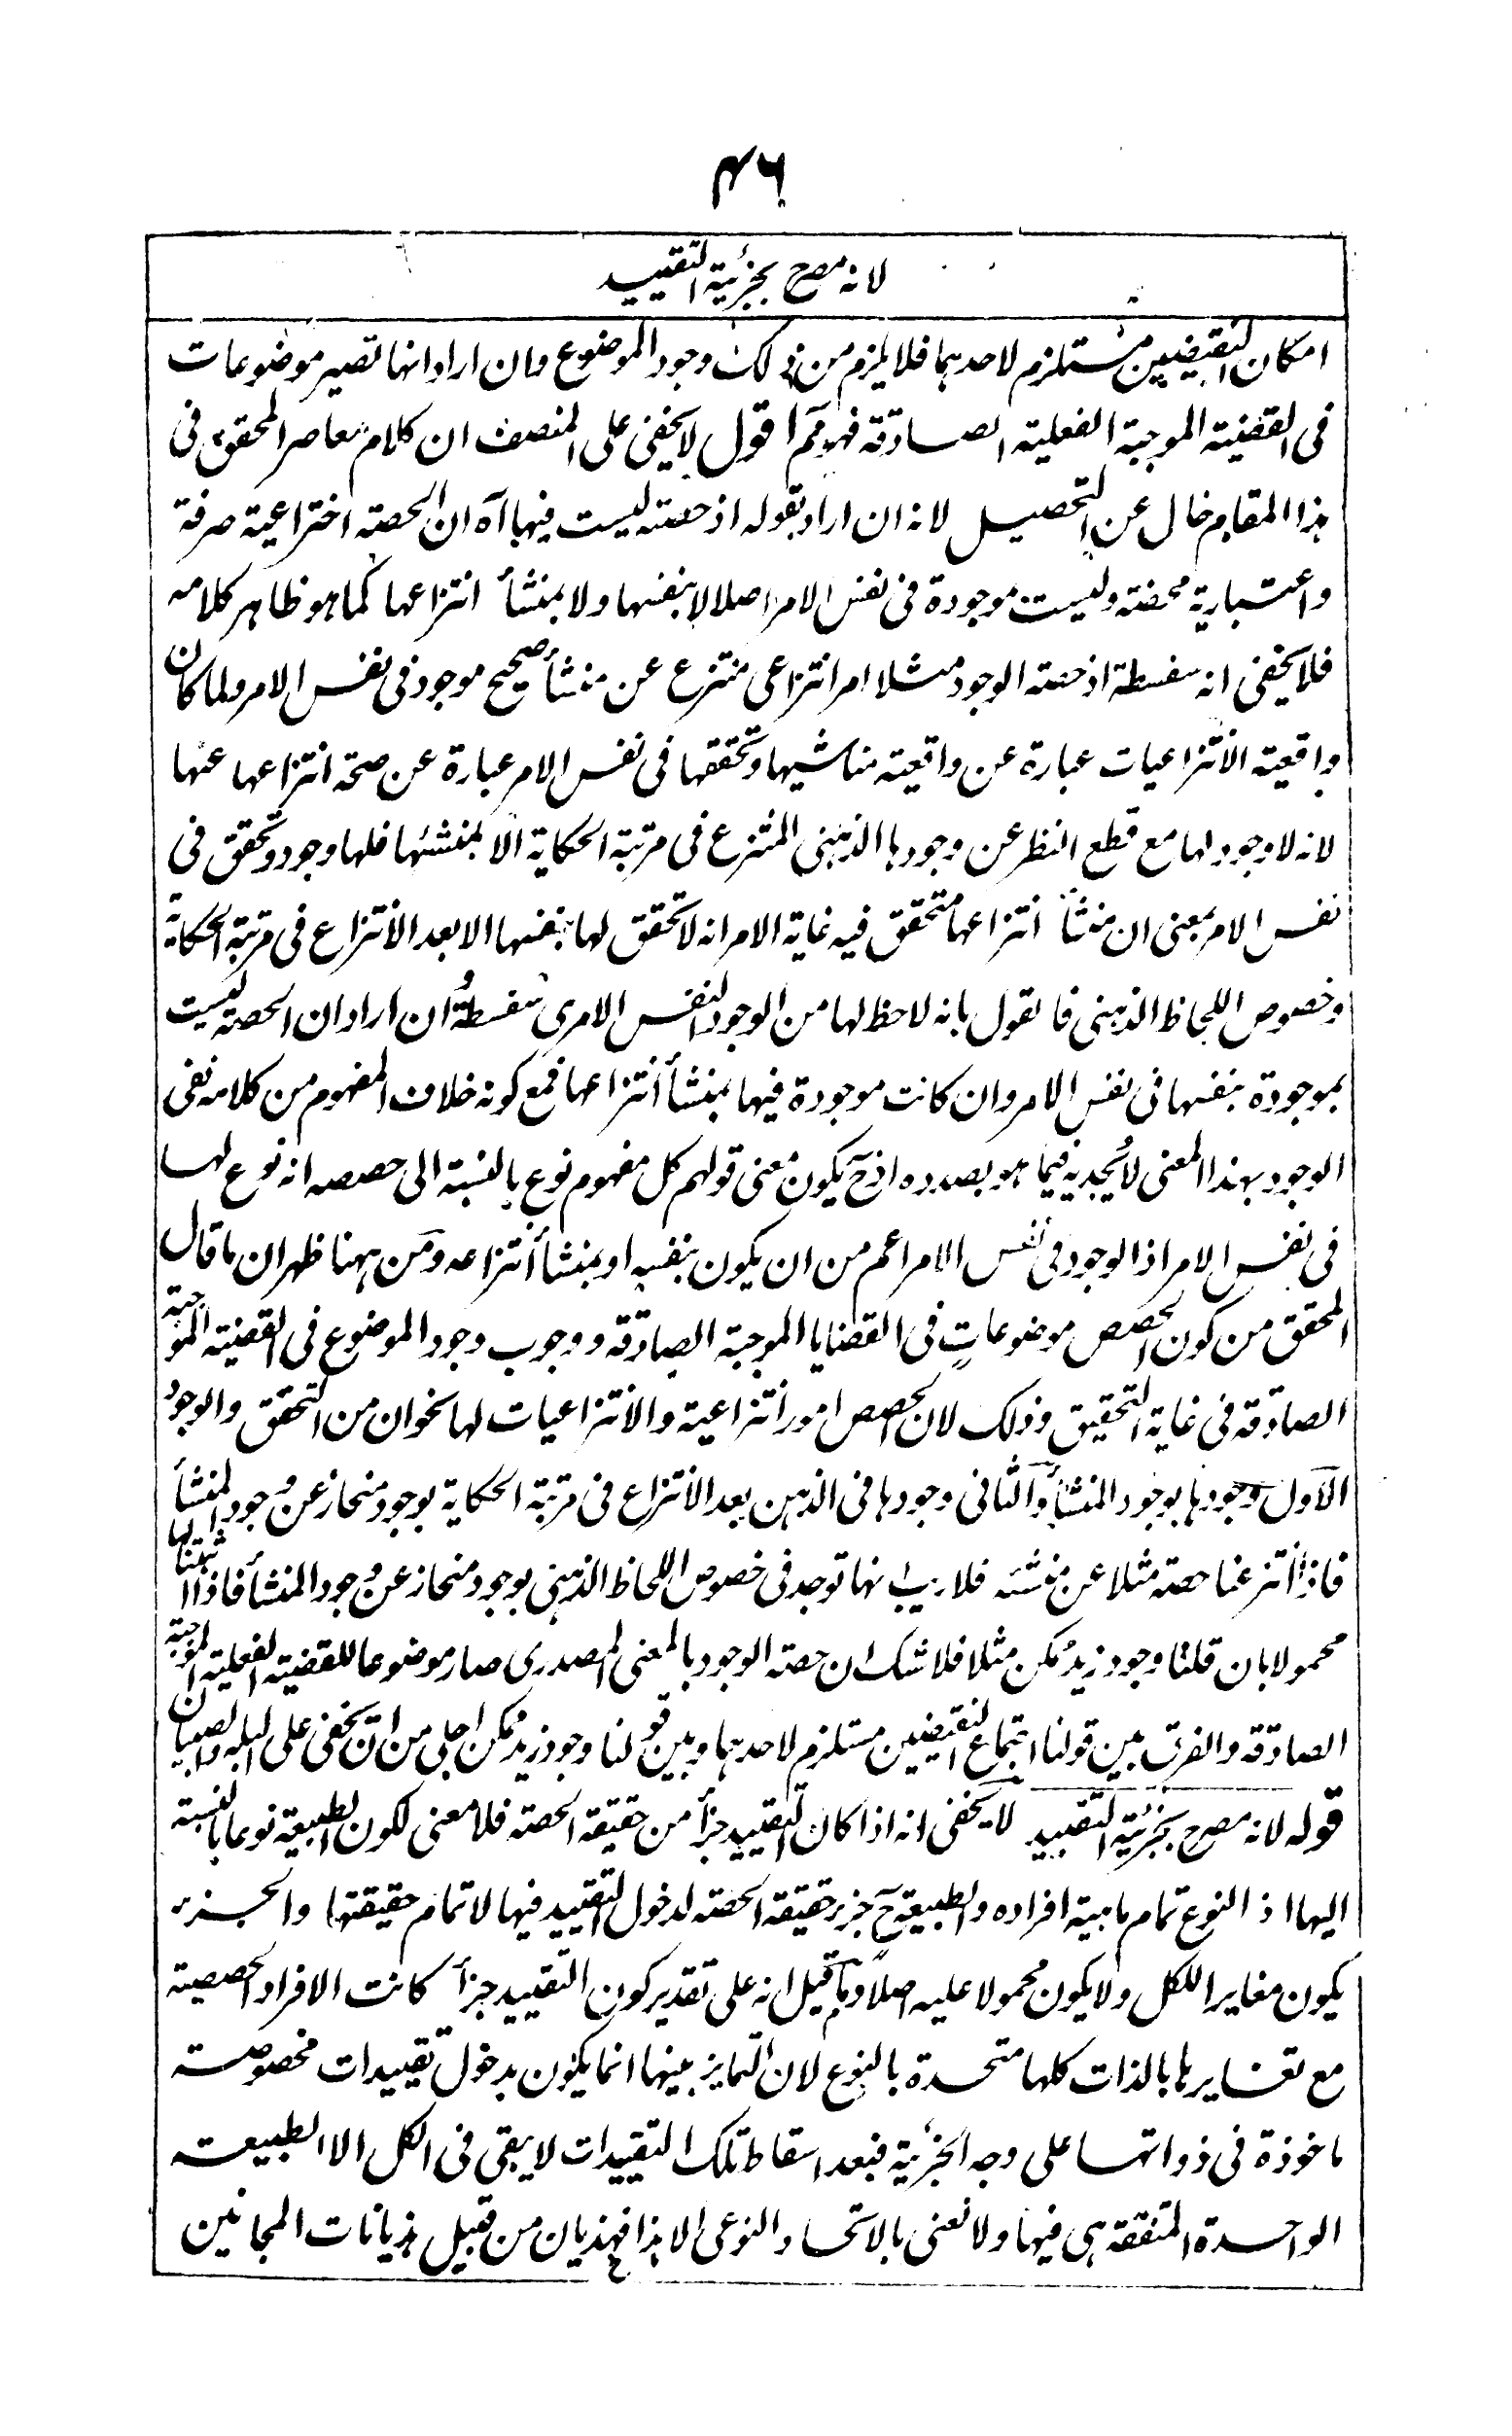 ٤٦
لانه مصرح بجزئية التقييد
امكان النقيضين مستلزم لاحدهما فلا يلزم من ذلك وجود الموضوع وان اراد انها تصير موضوعات
فى القضية الموجبة الفعلية الصادقة فهو مم اقول لا يخفى على المنصف ان كلام معاصر المحقق فى
هذا المقام خال عن التحصيل لانه ان اراد بقوله اذ حصته ليست فيها آه ان الحصة اختراعية صرفة
واعتبارية محضة وليست موجودة فى نفس الامر اصلا لا بنفسها ولا بمنشأ انتزاعها كما هو ظاهر كلامه
فلا يخفى انه سفسطة اذ حصة الوجود مثلا امر انتزاعى منتزع عن منشأ صحيح موجود فى نفس الامر ولما كان
واقعية الانتزاعيات عبارة عن واقعية مناشيها وتحققها فى نفس الامر عبارة عن صحة انتزاعها عنها
لانه لا وجود لها مع قطع النظر عن وجودها الذهنى المنتزع فى مرتبة الحكاية الا بمنشئها فلها وجود وتحقق فى
نفس الامر بمعنى ان منشأ انتزاعها متحقق فيه غاية الامر انه لا تحقق لها بنفسها الا بعد الانتزاع فى مرتبة الحكاية
وخصوص اللحاظ الذهنى فالقول بانه لاحظ لها من الوجود النفس الامرى سفسطة وان اراد ان الحصة ليست
بموجودة بنفسها فى نفس الامر وان كانت موجودة فيها بمنشأ انتزاعها فمع كونه خلاف المفهوم من كلامه نفى
الوجود بهذا المعنى لا يجديه فيما هو بصدده اذ ح يكون معنى قولهم كل مفهوم نوع بالنسبة الى حصصه انه نوع لها
فى نفس الامر اذ الوجود فى نفس الامر اعم من ان يكون بنفسه او بمنشأ انتزاعه ومن ههنا ظهر ان ما قال
المحقق من كون الحصص موضوعات فى القضايا الموجبة الصادقة ووجوب وجود الموضوع فى القضية الموجبة
الصادقة فى غاية التحقيق وذلك لان الحصص امور انتزاعية والانتزاعيات لها نحوان من التحقق والوجود
الاول وجودها بوجود المنشأ والثانى وجودها فى الذهن بعد الانتزاع فى مرتبة الحكاية بوجود منحاز عن وجود المنشأ
فاذا انتزعنا حصة مثلا عن منشئه فلا ريب انها توجد فى خصوص اللحاظ الذهنى بوجود منحاز عن وجود المنشأ فاذا اثبتنا لها
محمولا بان قلنا وجود زيد ممكن مثلا فلا شك ان حصة الوجود بالمعنى المصدرى صار موضوعا للقضية الفعلية الموجبة
الصادقة والفرق بين قولنا اجتماع النقيضين مستلزم لاحدهما وبين قولنا وجود زيد ممكن اجلى من ان يخفى على البله والصبيان
قوله لانه مصرح بجزئية التقييد لا يخفى انه اذا كان التقييد جزأ من حقيقة الحصة فلا معنى لكون الطبيعة نوعا بالنسبة
اليها اذ النوع تمام ماهية افراده والطبيعة ح جزء حقيقة الحصة لدخول التقييد فيها لا تمام حقيقتها والجزء
يكون مغايرا للكل ولا يكون محمولا عليه اصلا وما قيل انه على تقدير كون التقييد جزأ كانت الافراد الحصصية
مع تغايرها بالذات كلها متحدة بالنوع لان التمايز بينها انما يكون بدخول تقييدات مخصوصة
ماخوذة فى ذواتها على وجه الجزئية فبعد اسقاط تلك التقييدات لا يبقى فى الكل الا الطبيعة
الواحدة المتفقة هى فيها ولا نعنى بالاتحاد النوعى الا هذا فهذيان من قبيل هذيانات المجانين